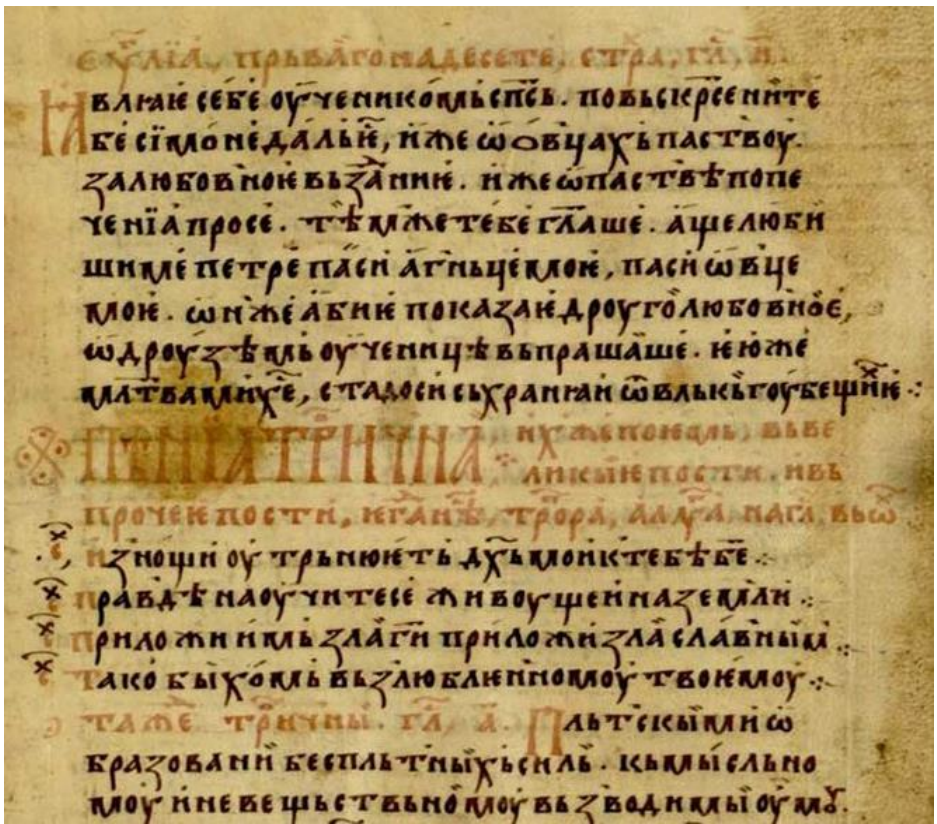 еѵⷢ҇лїа, прьва́гонадесете, стра, гла, и҃.
Ꙗвлꙗѥ себе оу҆ченикомьсп҃сь. повьскрⷭ҇ени́те
бе сїмоне́дальѥ, и҆же ѡ҆ѻвцахьпаствоу.
залюбовноѥвьзани́ѥ. и҆же ѡ҆паствѣпопе
че́нїапросе. тѣмжетебегл҃аше. а҆щелюби
шиме петре паси агньцемоѥ, паси ѡ҆вце
моѥ. ѡ҆нже а҆биѥ показаѥдроуголюбовное,
ѡ҆дроузѣмьоу҆ченицѣвьпраша́ше. ѥюже
мл҃тваⷨмих҃е, стадосисьхранꙗи ѿвлькьгоубещиⷯиⷯ ⁘
Пѣнїа трⷪ҇ична, ихжепоѥмь, вьве
ликыѥпости, ивь
прочеѥпости, игдⷭ҇анⷨѣ, трⷪ҇ра, алⷧуа, нагл҃, вьѡⷯ
И҆знощи оу҆трьнюѥть дх҃ьмоиктебѣбе҃ ⁘
правдѣнаоу҆читесе живоущеиназемли ⁘
приложи и҆мьзлаги҃ приложизлаславныⷨ ⁘
тако быхомьвьзлюблѥнномоу твоѥмоу ⁘
та́же трⷪ҇ичны. гл҃, а҃. Пльтскымиѡ
бразовани бесплътны́хьсиль. кьмы́сльно
моу и҆невещьствьномоу вьзводимы́ оу҆мꙋ.